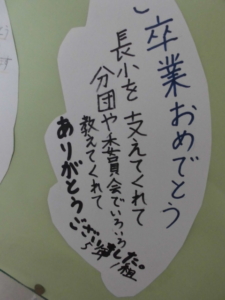 卒業おめでとう
長小を支えてくれて
分団や委員会でいろいろ
教えてくれて
ありがとうございました。